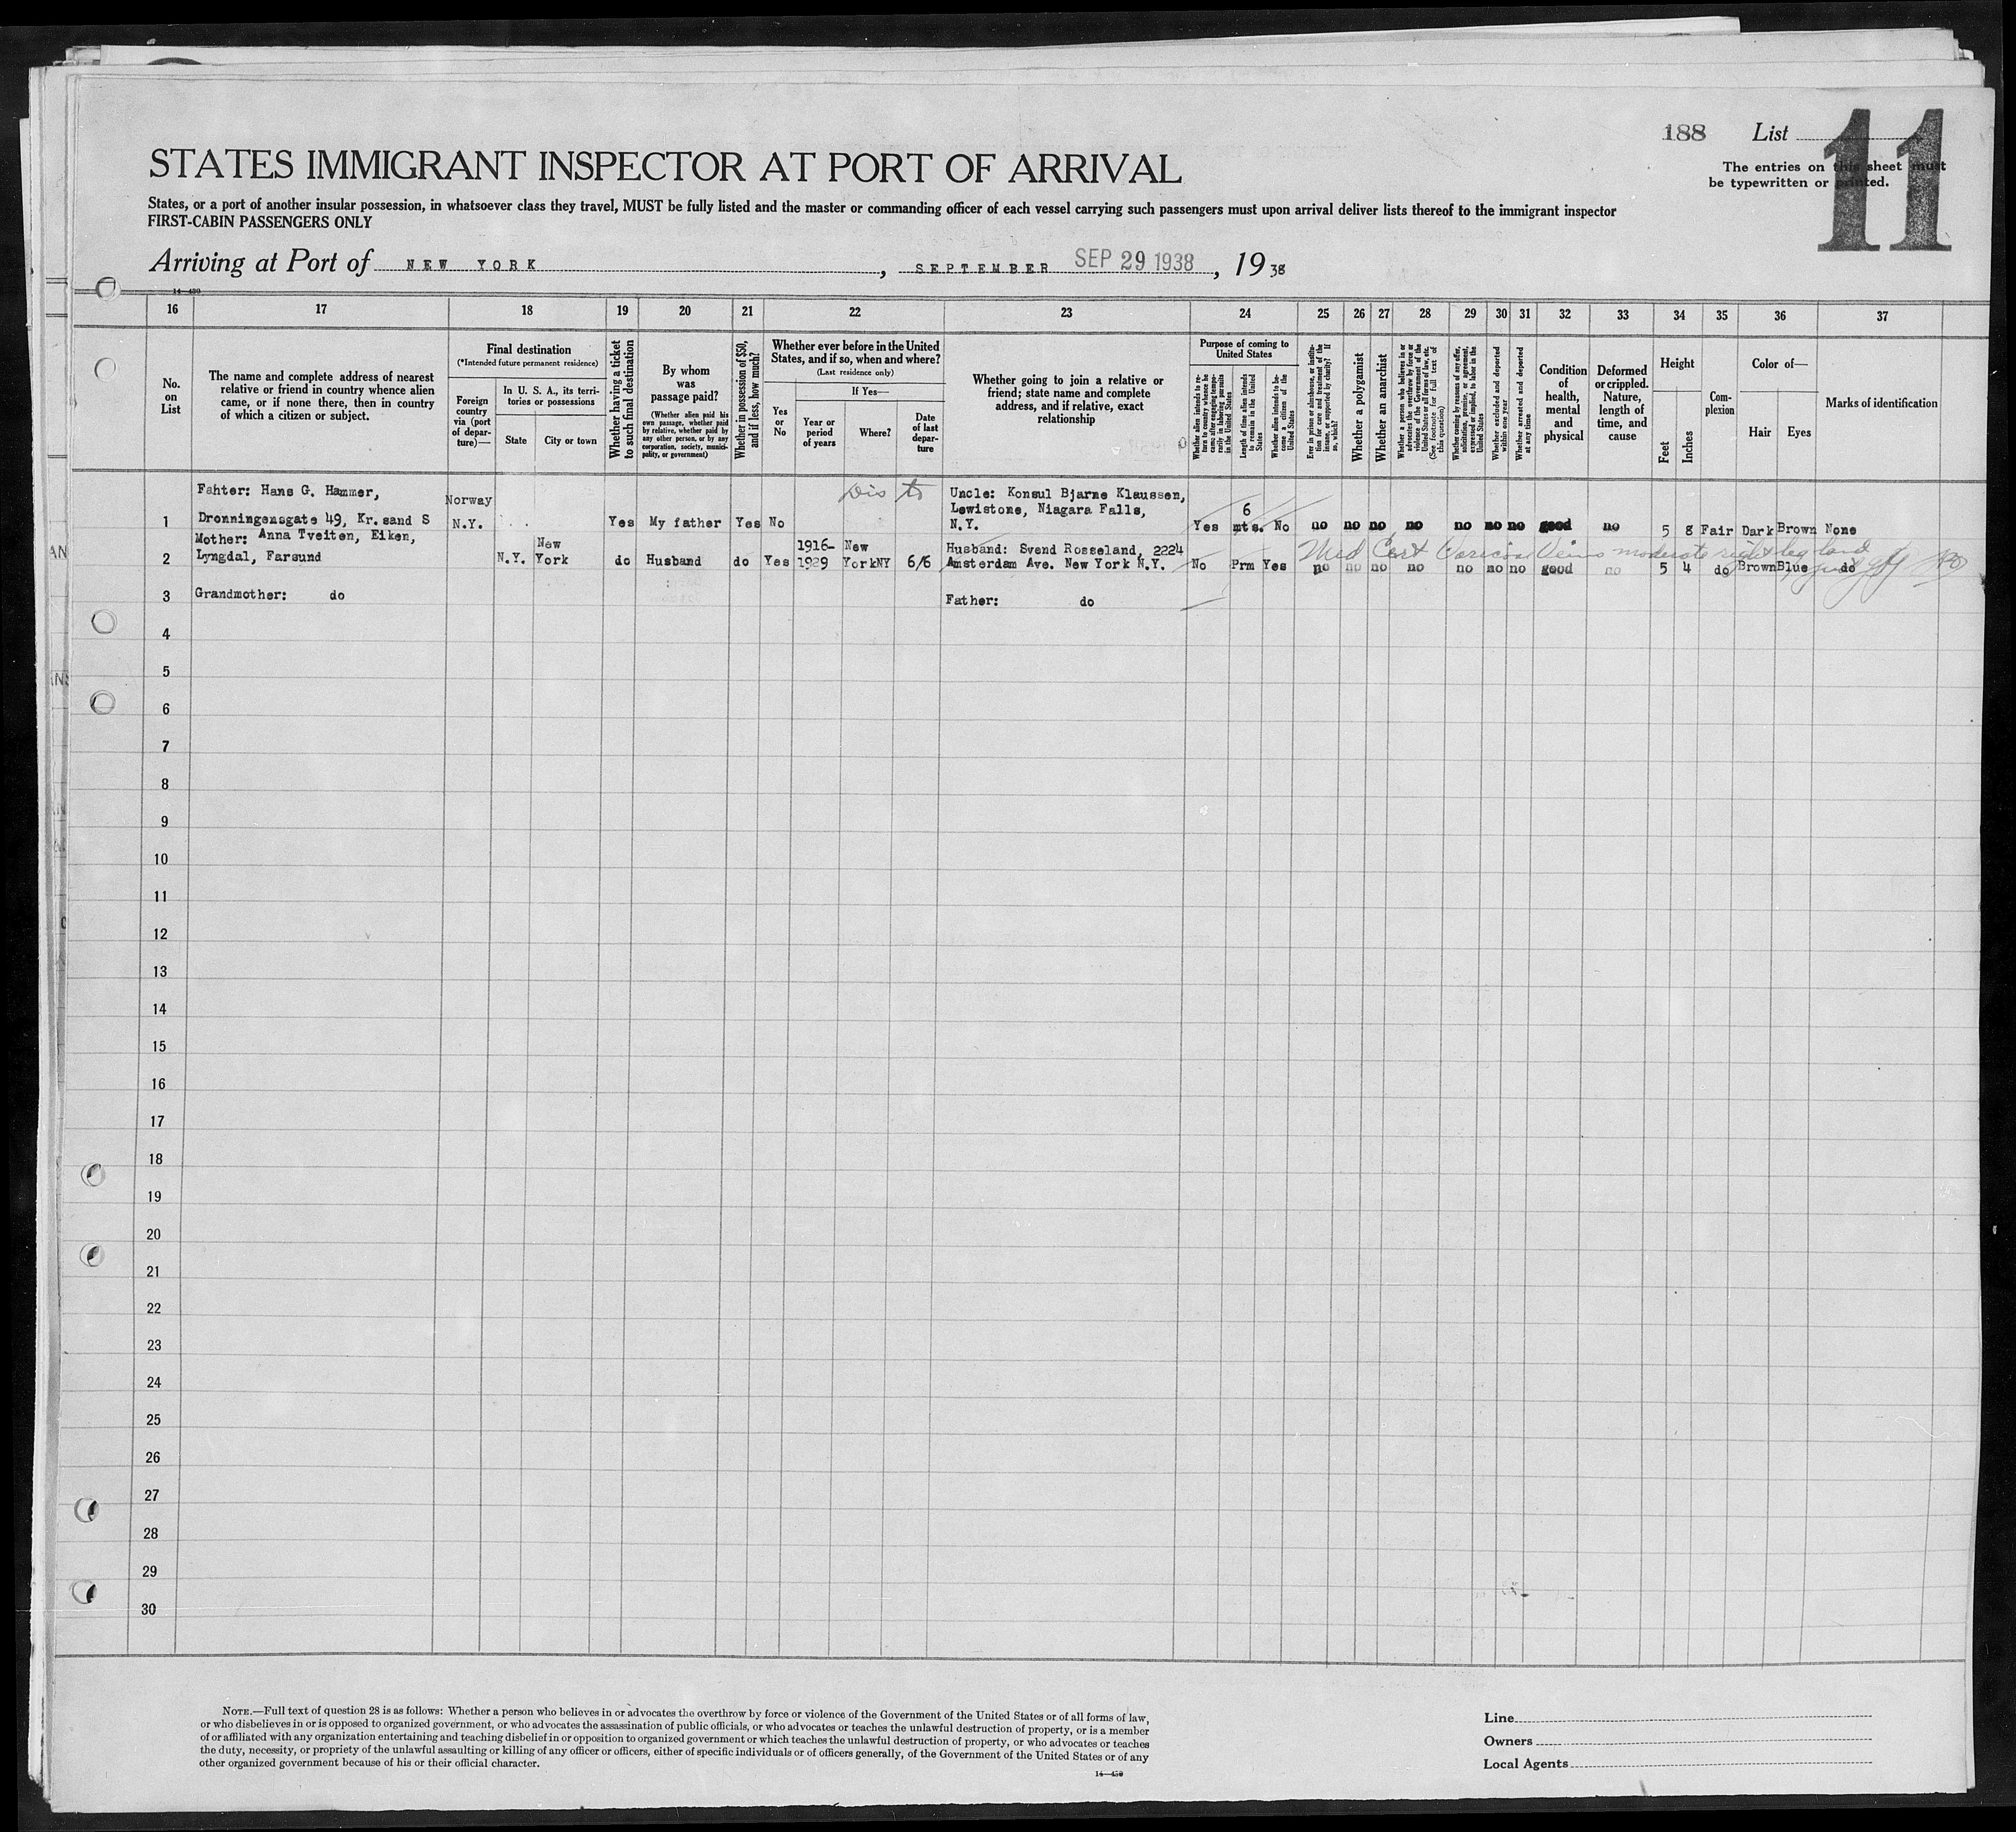 188 List 11
The entries on this sheet must
be typewritten or printed.
STATES IMMIGRANT INSPECTOR AT PORT OF ARRIVAL
States, or a port of another insular possession, in whatsoever class they travel, MUST be fully listed and the master or commanding officer of each vessel carrying such passengers must upon arrival deliver lists thereof to the immigrant inspector
FIRST-CABIN PASSENGERS ONLY
Arriving at Port of NEW YORK, SEPTEMBER SEP 29 1938, 19 38
14—480
16 17 18 19 20 21 22 23 24 25 26 27 28 29 30 31 32 33 34 35 36 37
No.
on
List
The name and complete address of nearest
relative or friend in country whence alien
came, or if none there, then in country
of which a citizen or subject.
Final destination
(*Intended future permanent residence)
Foreign
country
via (port
of depar-
ture)—
In U. S. A., its terri-
tories or possessions
State
City or town
Whether having a ticket
to such final destination
By whom
was
passage paid?
(Whether alien paid his
own passage, whether paid
by relative, whether paid by
any other person, or by any
corporation, society, munici-
pality, or government)
Whether in possession of $50,
and if less, how much?
Whether ever before in the United
States, and if so, when and where?
(Last residence only)
Yes
or
No
If Yes—
Year or
period
of years
Where?
Date
of last
depar-
ture
Whether going to join a relative or
friend; state name and complete
address, and if relative, exact
relationship
Purpose of coming to
United States
Whether alien intends to re-
turn to country whence he
came after engaging tempo-
rarily in laboring pursuits
in the United States
Length of time alien intends
to remain in the United
States
Whether alien intends to be-
come a citizen of the
United States
Ever in prison or almshouse, or institu-
tion for care and treatment of the
insane, or supported by charity? If
so, which?
Whether a polygamist
Whether an anarchist
Whether a person who believes in or
advocates the overthrow by force or
violence of the Government of the
United States or all forms of law, etc.
(See footnote for full text of
this question)
Whether coming by reason of any offer,
solicitation, promise, or agreement,
expressed or implied, to labor in the
United States
Whether excluded and deported
within one year
Whether arrested and deported
at any time
Condition
of
health,
mental
and
physical
Deformed
or crippled.
Nature,
length of
time, and
cause
Height
Feet
Inches
Com-
plexion
Color of—
Hair
Eyes
Marks of identification
Fahter: Hans G. Hammer, Norway Dis to Uncle: Konsul Bjarne Klaussen,
Lewistone, Niagara Falls, 6
1 Dronningensgate 49, Kr. sand S N.Y. Yes My father Yes No N.Y. Yes mts. No no no no no no no no good no 5 8 Fair Dark Brown None
Mother: Anna Tveiten, Eiken, New 1916- New Husband: Svend Rosseland, 2224 Med Cert Varicose Veins moderate right leg
2 Lyngdal, Farsund N.Y. York do Husband do Yes 1929 YorkNY 6/6 Amsterdam Ave. New York N.Y. No Prm Yes no no no no no no no good no 5 4 do Brown Blue do
3 Grandmother: do Father: do
4
5
6
7
8
9
10
11
12
13
14
15
16
17
18
19
20
21
22
23
24
25
26
27
28
29
30
NOTE.—Full text of question 28 is as follows: Whether a person who believes in or advocates the overthrow by force or violence of the Government of the United States or of all forms of law,
or who disbelieves in or is opposed to organized government, or who advocates the assassination of public officials, or who advocates or teaches the unlawful destruction of property, or is a member
of or affiliated with any organization entertaining and teaching disbelief in or opposition to organized government or which teaches the unlawful destruction of property, or who advocates or teaches
the duty, necessity, or propriety of the unlawful assaulting or killing of any officer or officers, either of specific individuals or of officers generally, of the Government of the United States or of any
other organized government because of his or their official character.
14—480
Line
Owners
Local Agents